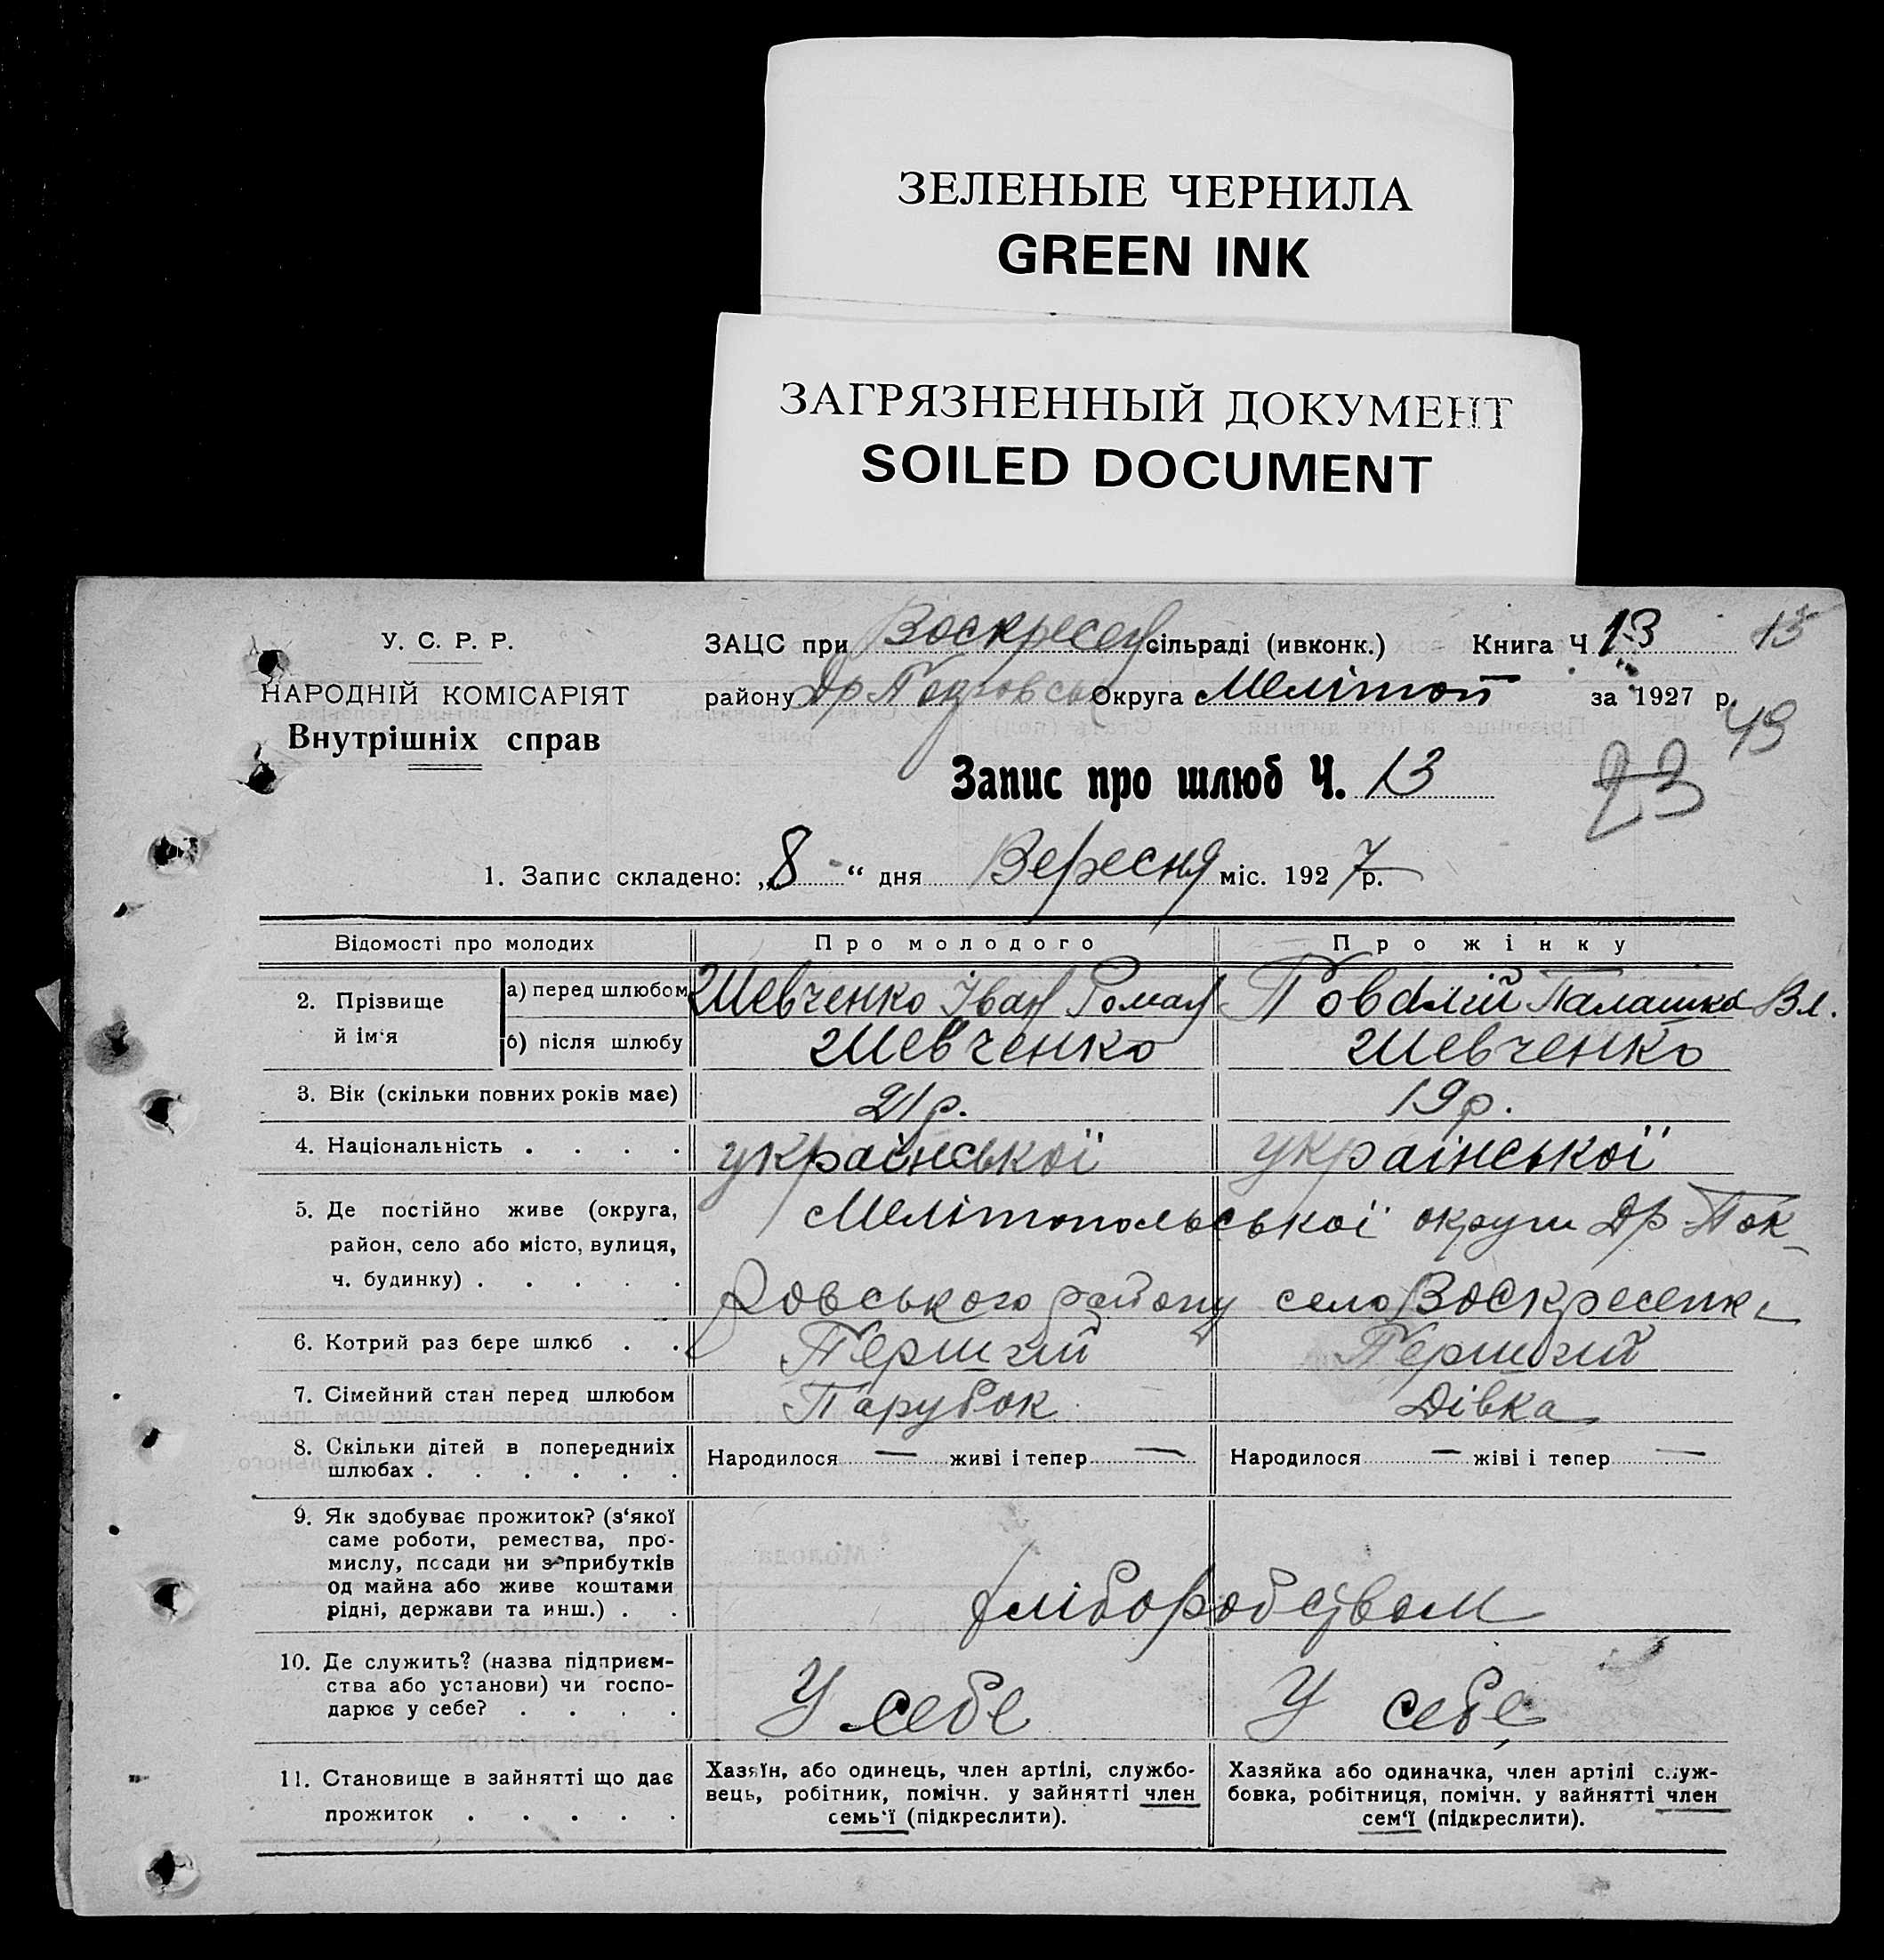 ЗЕЛЕНЫЕ ЧЕРНИЛА
GREEN INK
ЗАГРЯЗНЕННЫЙ ДОКУМЕНТ
SOILED DOCUMENT
У. С. Р. Р.
НАРОДНІЙ КОМІСАРІЯТ
Внутрішніх справ
ЗАЦС при Воскресен сільраді (ивконк.) Книга Ч 13 13
району Др Покровськ Округа Мелітоп за 1927 р.
49
Запис про шлюб Ч. 13
23
1. Запис складено: „8“ дня Вересня міс. 1927 р.
Відомості про молодих Про молодого Про жінку
2. Прізвище й ім'я
а) перед шлюбом Шевченко Іван Роман Палашка Вл.
б) після шлюбу Шевченко Шевченко
3. Вік (скільки повних років має) 21 р. 19 р.
4. Національність . . . . української української
5. Де постійно живе (округа, Мелітопольської округи Др Пок-
район, село або місто, вулиця,
ч. будинку) . . . . . ровського району село Воскресенк
6. Котрий раз бере шлюб . . Перший Перший
7. Сімейний стан перед шлюбом Парубок Дівка
8. Скільки дітей в попередниіх Народилося — живі і тепер — Народилося — жіві і тепер —
шлюбах . . . . . .
9. Як здобуває прожиток? (з'якої
саме роботи, ремества, про-
мислу, посади чи з прибутків
од майна або живе коштами
рідні, держави та инш.) . . хліборобством
10. Де служить? (назва підприєм-
ства або установи) чи госпо- У себе У себе
дарює у себе? . . . .
11. Становище в зайнятті що дає
прожиток . . . . .
Хазяїн, або одинець, член артілі, службо-
вець, робітник, помічн. у зайнятті член
семь'ї (підкреслити).
Хазяйка або одиначка, член артілі служ-
бовка, робітниця, помічн. у зайнятті член
сем'ї (підкреслити).